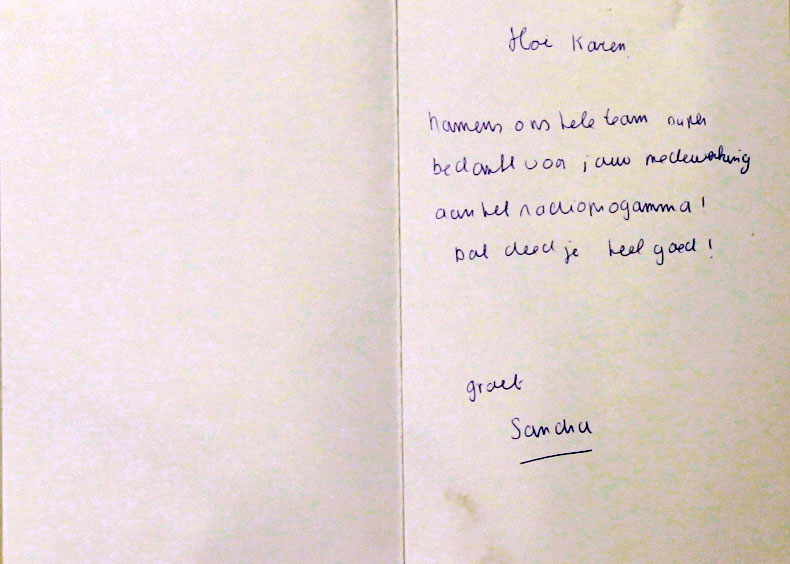 Hoi Karen
namens ons hele team super
bedankt voor jouw medewerking
aan het radioprogamma!
Dat deed je heel goed!
groet
Sandra